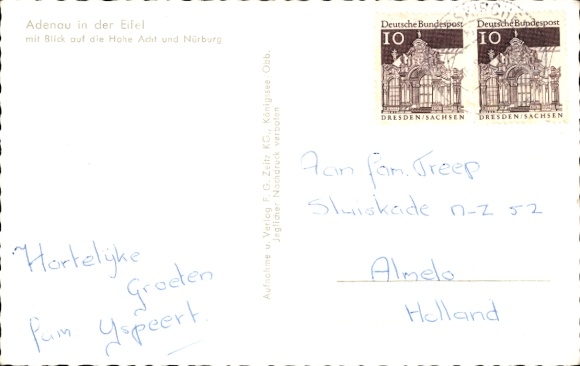 Adenau in der Eifel
mit Blick auf die Hohe Acht und Nürburg
Deutsche Bundespost
10
DRESDEN/SACHSEN
Deutsche Bundespost
10
DRESDEN/SACHSEN
Aufnahme u. Verlag F. G. Zeitz KG., Königssee Obb.
Jeglicher Nachdruck verboten
Hartelijke
Groeten
fam Yspeert.
Aan fam. Treep
Sluiskade n-z 52
Almelo
Holland